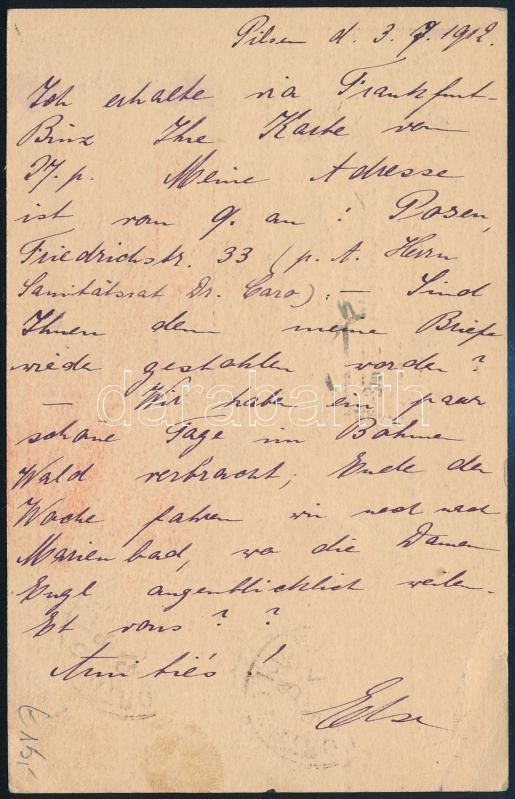 Pilsen d. 3. 7. 1912.
Ich erhalte via Frankfurt-
Binz Ihre Karte vom
27. p. Meine Adresse
ist vom 9. an : Posen,
Friedrichstr. 33 (p. A. Herrn
Sanitätsrat Dr. Caro). — Sind
Ihnen denn meine Briefe
wieder gestohlen worden?
— Wir haben ein paar
schöne Tage im Böhmer
Wald verbracht; Ende der
Woche fahren wir noch nach
Marienbad, wo die Damen
Engl augenblicklich weilen.
Et vous ? ?
Amitiés !
Else
darabanth